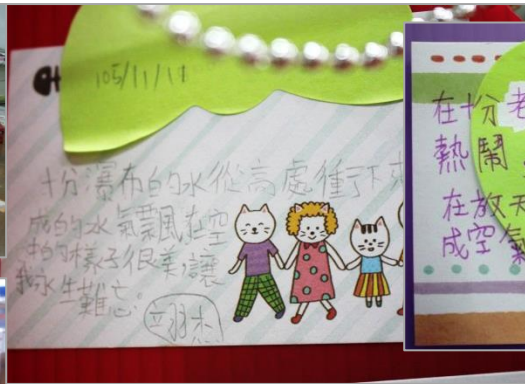 105/11/11
十分瀑布的水從高處種下來
成的水氣飄在空
的樣子很美讓
我永生難忘。
羽杰
在十分老
熱鬧
在放天
成空氣